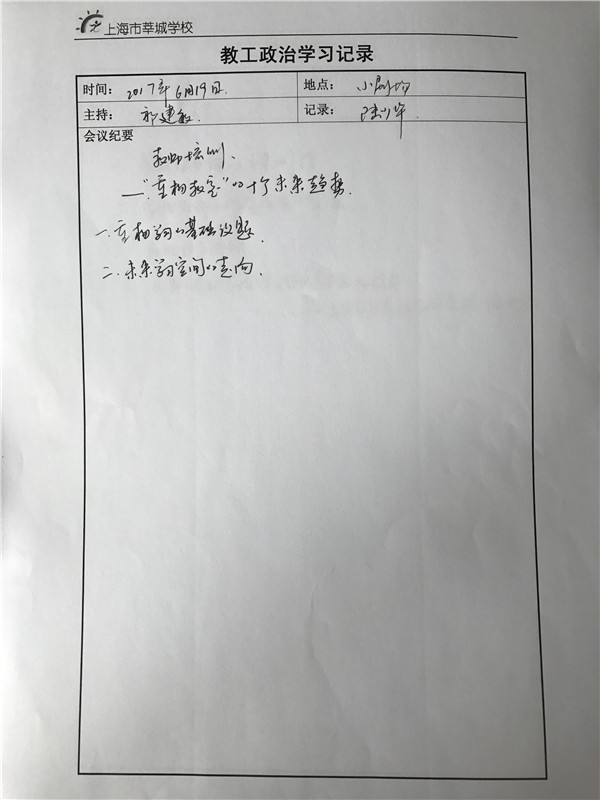 上海市莘城学校
教工政治学习记录
时间: 2017年6月19日. 地点: 小剧场
主持: 祁建敏. 记录: 陆少华
会议纪要
教师培训.
——“重构教室”的十个未来趋势.
一.重构学习的基础议题.
二.未来学习空间的走向.